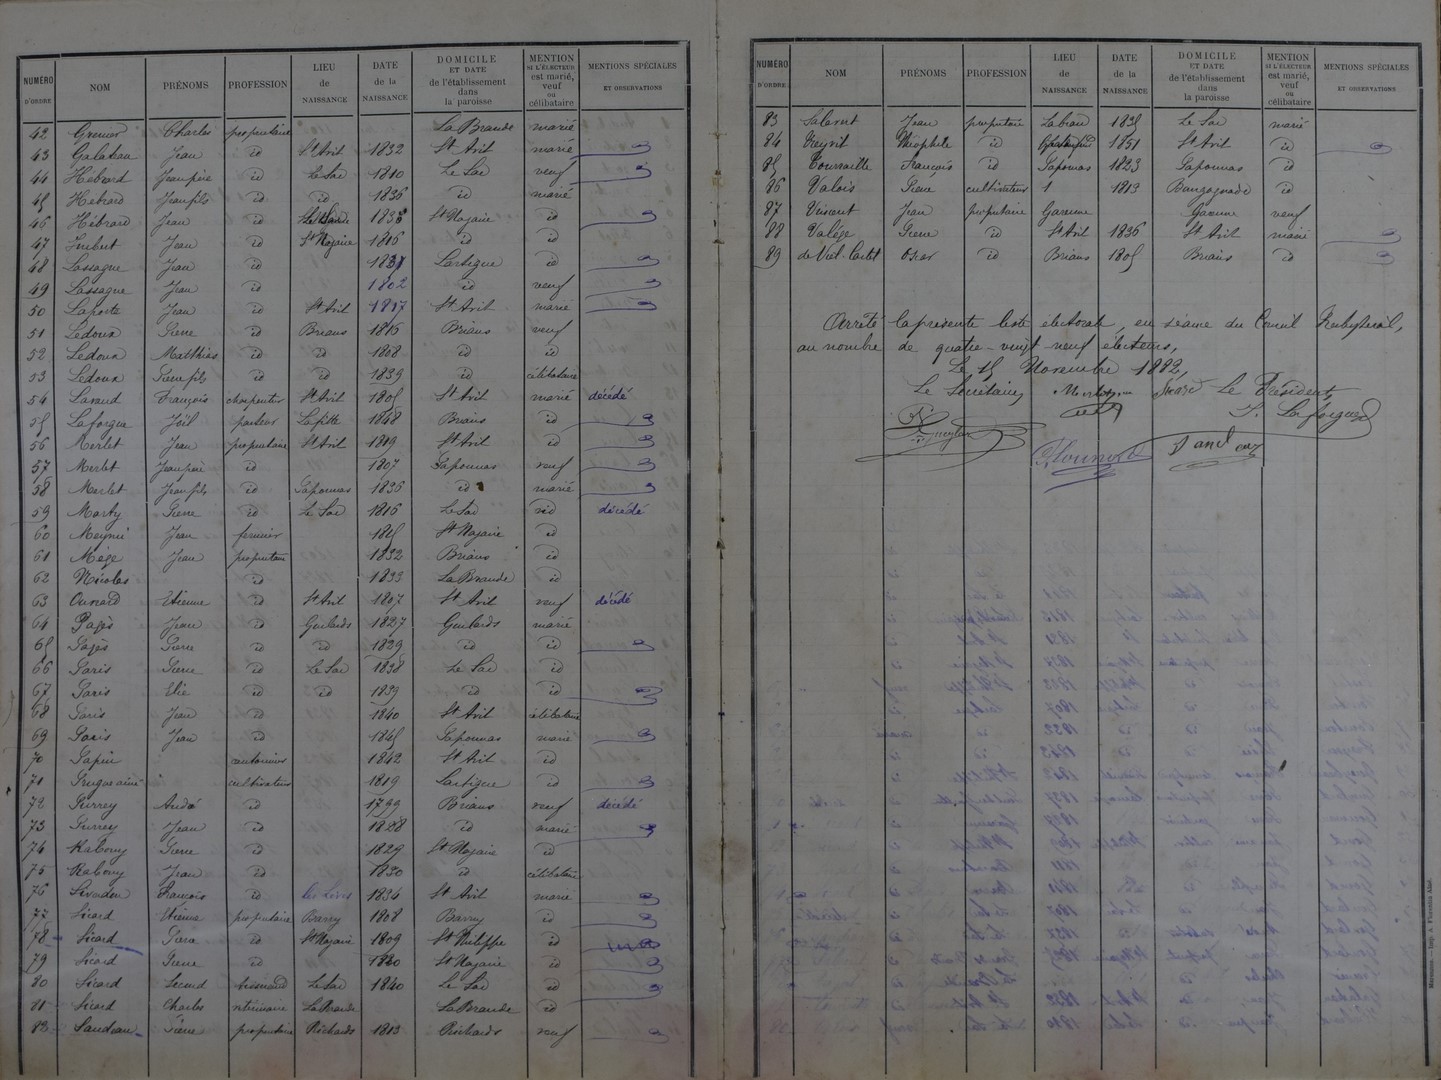 NUMÉRO D'ORDRE NOM PRÉNOMS PROFESSION LIEU de NAISSANCE DATE de la NAISSANCE DOMICILE ET DATE de l'établissement dans la paroisse MENTION SI L'ÉLECTEUR est marié, veuf ou célibataire MENTIONS SPÉCIALES ET OBSERVATIONS
42 Grenier Charles propriétaire La Brande marié
43 Galateau Jean id St Avit 1832 St Avit marié
44 Hébrard Jean père id Le Sac 1810 Le Sac veuf
45 Hébrard Jean fils id id 1836 id marié
46 Hébrard Jean id 1838 St Nazaire id
47 Imbert Jean id St Nazaire 1816 id id
48 Lassagne Jean id 1837 Lartigue id
49 Lassagne Jean id 1802 id veuf
50 Laporte Jean id St Avit 1817 St Avit marié
51 Ledoux Pierre id Brians 1815 Brians veuf
52 Ledoux Matthieu id id 1808 id id
53 Ledoux Pierre fils id id 1839 id célibataire
54 Laraud François charpentier St Avit 1805 St Avit marié décédé
55 Laforgue Joël pasteur Lafitte 1848 Brians id
56 Merlet Jean propriétaire St Avit 1819 St Avit id
57 Merlet Jean père id 1807 Saponnas veuf
58 Merlet Jean fils id Saponnas 1836 id marié
59 Marty Pierre id Le Sac 1816 Le Sac id décédé
60 Jean fermier St Nazaire id
61 Mège Jean propriétaire 1832 Brians id
62 Nicolas id 1833 La Brande id
63 Etienne id St Avit 1807 St Avit veuf décédé
64 Pagès Jean id Guilards 1827 Guilards marié
65 Pagès Pierre id id 1829 id id
66 Paris Pierre id Le Sac 1838 Le Sac id
67 Paris Elie id id 1839 id id
68 Paris Jean id 1840 St Avit célibataire
69 Paris Jean id 1845 Saponnas marié
70 Papin cantonnier 1842 St Avit id
71 cultivateur 1819 Lartigue id
72 Purrey André id 1799 Brians veuf décédé
73 Purrey Jean id 1828 id marié
74 Rabouy Pierre id 1829 St Nazaire id
75 Rabouy Jean id 1830 id célibataire
76 François id les Lèves 1834 St Avit marié
77 Sicard Etienne propriétaire Barry 1808 Barry id
78 Sicard Pierre id St Nazaire 1809 St Philippe id
79 Sicard Pierre id 1820 St Nazaire id
80 Sicard id Le Sac 1840 Le Sac id
81 Sicard Charles vétérinaire La Brande La Brande id
82 Sandeau Pierre propriétaire Richards 1813 Richards veuf
NUMÉRO D'ORDRE NOM PRÉNOMS PROFESSION LIEU de NAISSANCE DATE de la NAISSANCE DOMICILE ET DATE de l'établissement dans la paroisse MENTION SI L'ÉLECTEUR est marié, veuf ou célibataire MENTIONS SPÉCIALES ET OBSERVATIONS
83 Jean propriétaire 1835 Le Sac marié
84 Théophile id 1851 St Avit id
85 Tournaille François id Saponnas 1823 Saponnas id
86 Valois Pierre cultivateur 1813 id
87 Vincent Jean propriétaire Garenne Garenne veuf
88 Valège Pierre id St Avit 1836 St Avit marié
89 de Viel-Castel Oscar id Brians 1805 Brians id
Arrêté la présente liste électorale, en séance du Conseil Presbytéral,
au nombre de quatre-vingt neuf électeurs,
Le 15 Novembre 1882,
Le Secrétaire, Le Président,
J. Laforgue
Marmande. — Imp. A.